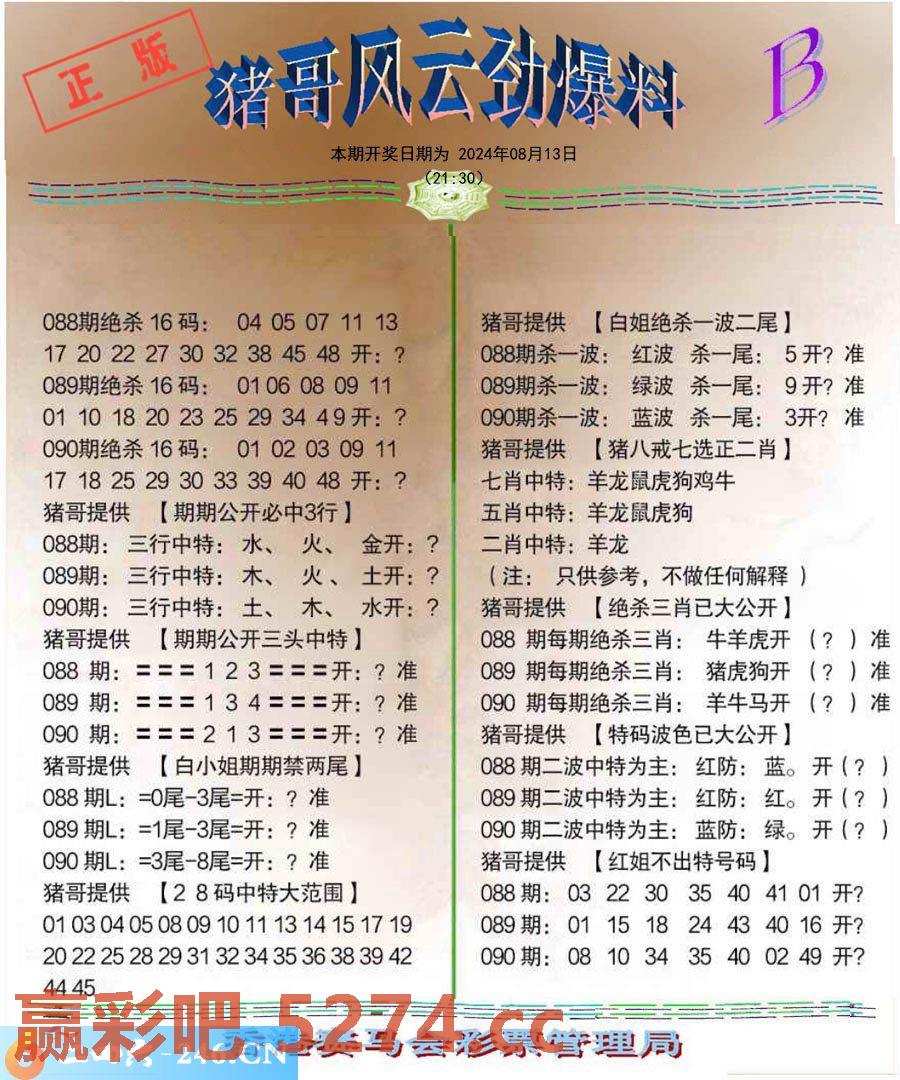 正版
猪哥风云劲爆料
B
本期开奖日期为 2024年08月13日
（21:30）
088期绝杀 16 码： 04 05 07 11 13
17 20 22 27 30 32 38 45 48 开：？
089期绝杀 16 码： 01 06 08 09 11
01 10 18 20 23 25 29 34 4 9 开：？
090期绝杀 16 码： 01 02 03 09 11
17 18 25 29 30 33 39 40 48 开：？
猪哥提供 【期期公开必中3行】
088期：三行中特：水、 火、 金开：？
089期：三行中特：木、 火、 土开：？
090期：三行中特：土、 木、 水开：？
猪哥提供 【期期公开三头中特】
088 期：〓〓〓 1 2 3 〓〓〓开：？准
089 期：〓〓〓 1 3 4 〓〓〓开：？准
090 期：〓〓〓 2 1 3 〓〓〓开：？准
猪哥提供 【白小姐期期禁两尾】
088 期L：=0尾-3尾=开：？准
089 期L：=1尾-3尾=开：？准
090 期L：=3尾-8尾=开：？准
猪哥提供 【2 8 码中特大范围】
01 03 04 05 08 09 10 11 13 14 15 17 19
20 22 25 28 29 31 32 34 35 36 38 39 42
44 45
猪哥提供 【白姐绝杀一波二尾】
088期杀一波： 红波 杀一尾： 5 开？准
089期杀一波： 绿波 杀一尾： 9 开？准
090期杀一波： 蓝波 杀一尾： 3开？准
猪哥提供 【猪八戒七选正二肖】
七肖中特：羊龙鼠虎狗鸡牛
五肖中特：羊龙鼠虎狗
二肖中特：羊龙
（注： 只供参考，不做任何解释 ）
猪哥提供 【绝杀三肖已大公开】
088 期每期绝杀三肖： 牛羊虎开 （？ ）准
089 期每期绝杀三肖： 猪虎狗开 （？ ）准
090 期每期绝杀三肖： 羊牛马开 （？ ）准
猪哥提供 【特码波色已大公开】
088 期二波中特为主：红防：蓝。开（？ ）
089 期二波中特为主：红防：红。开（？ ）
090 期二波中特为主：蓝防：绿。开（？ ）
猪哥提供 【红姐不出特号码】
088 期： 03 22 30 35 40 41 01 开?
089 期： 01 15 18 24 43 40 16 开?
090 期： 08 10 34 35 40 02 49 开?
赢彩吧 5274.cc
马会彩票管理局